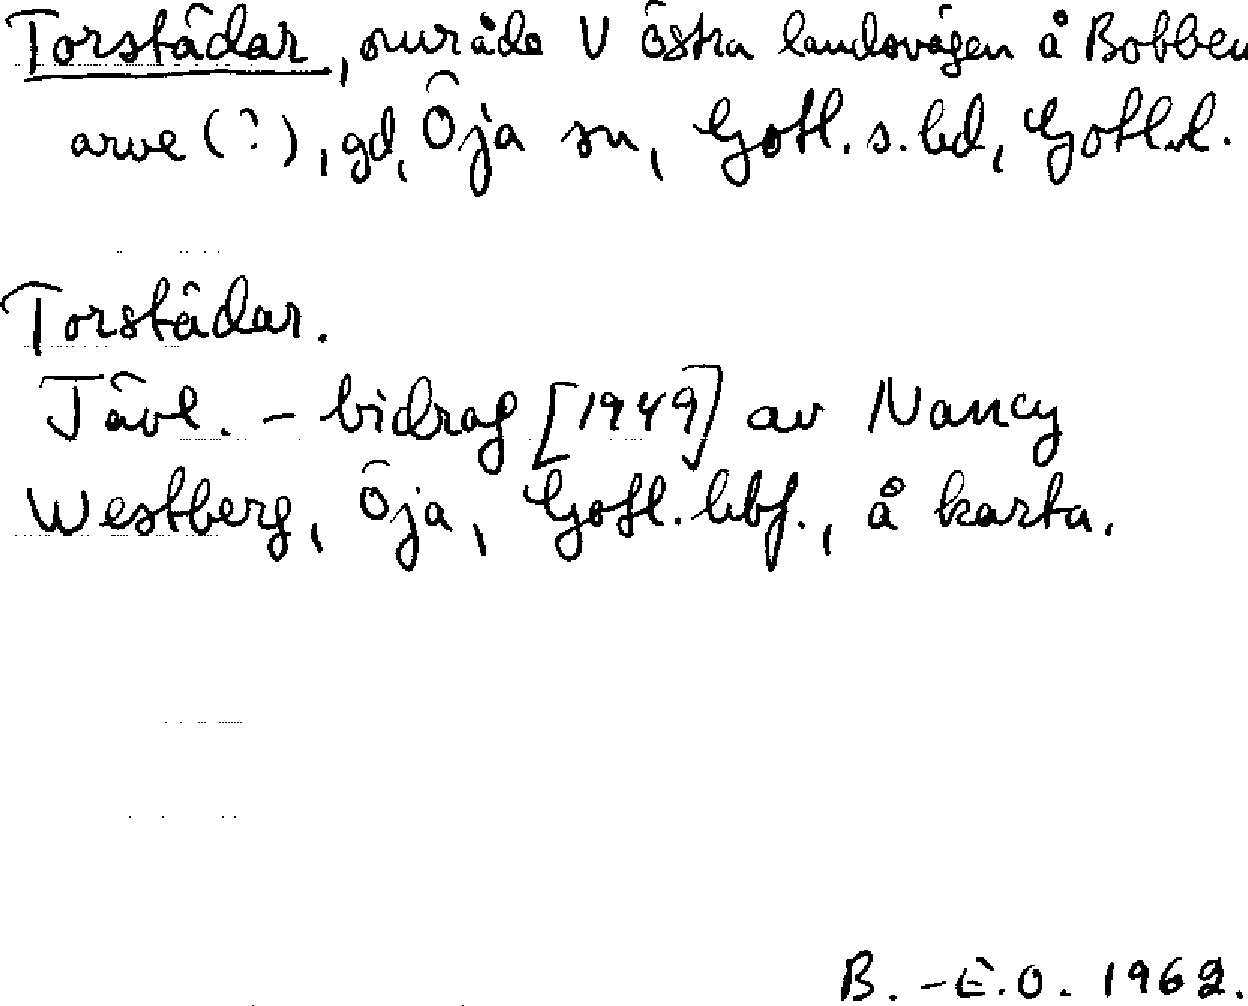 Torstädar, område V östra landsvägen å Bobben
arve (?), gd, Öja sn, Gotl. s. hd, Gotl.l.
Torstädar.
Tävl. - bidrag [1949] av Nancy
Westberg, Öja, Gotl. hbf., å karta.
B. -E.O. 1962.